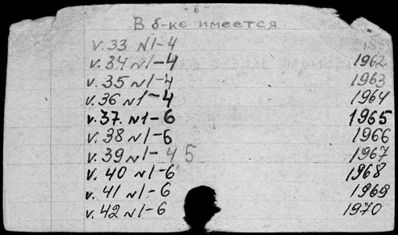 6
В б-ке имеется
v. 33 №1-4
v. 34 №1-4 1962
v. 35 №1-4 1963
v. 36 №1-4 1964
v. 37. №1-6 1965
v. 38 №1-6 1966
v. 39 №1-4 5 1967
v. 40 №1-6 1968
v. 41 №1-6 1969
v. 42 №1-6 1970